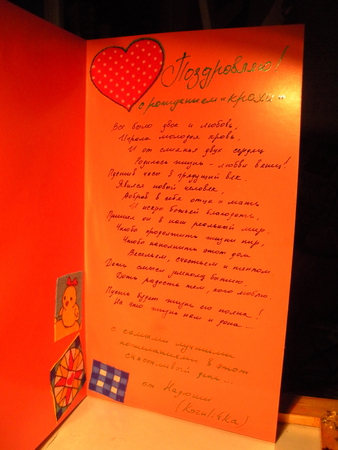 Поздравляю!
с рождением крохи...
Вас было двое и любовь,
Играла молодая кровь.
И от слиянья двух сердец
Родилась жизнь - любви венец!
в грядущий век
Явился новый человек.
Вобрав в себя отца и мать
И искру Божьей благодать.
Пришёл он в наш реальный мир,
Чтобы продолжить жизни пир,
Чтобы наполнить этот дом
Весельем, счастьем и теплом
Дать смысл
Дать радость тем, кого люблю
Пусть будет жизнь его полна!
На то жизнь нам и дана...
с самыми лучшими
пожеланиями в этот
счастливый день...
от